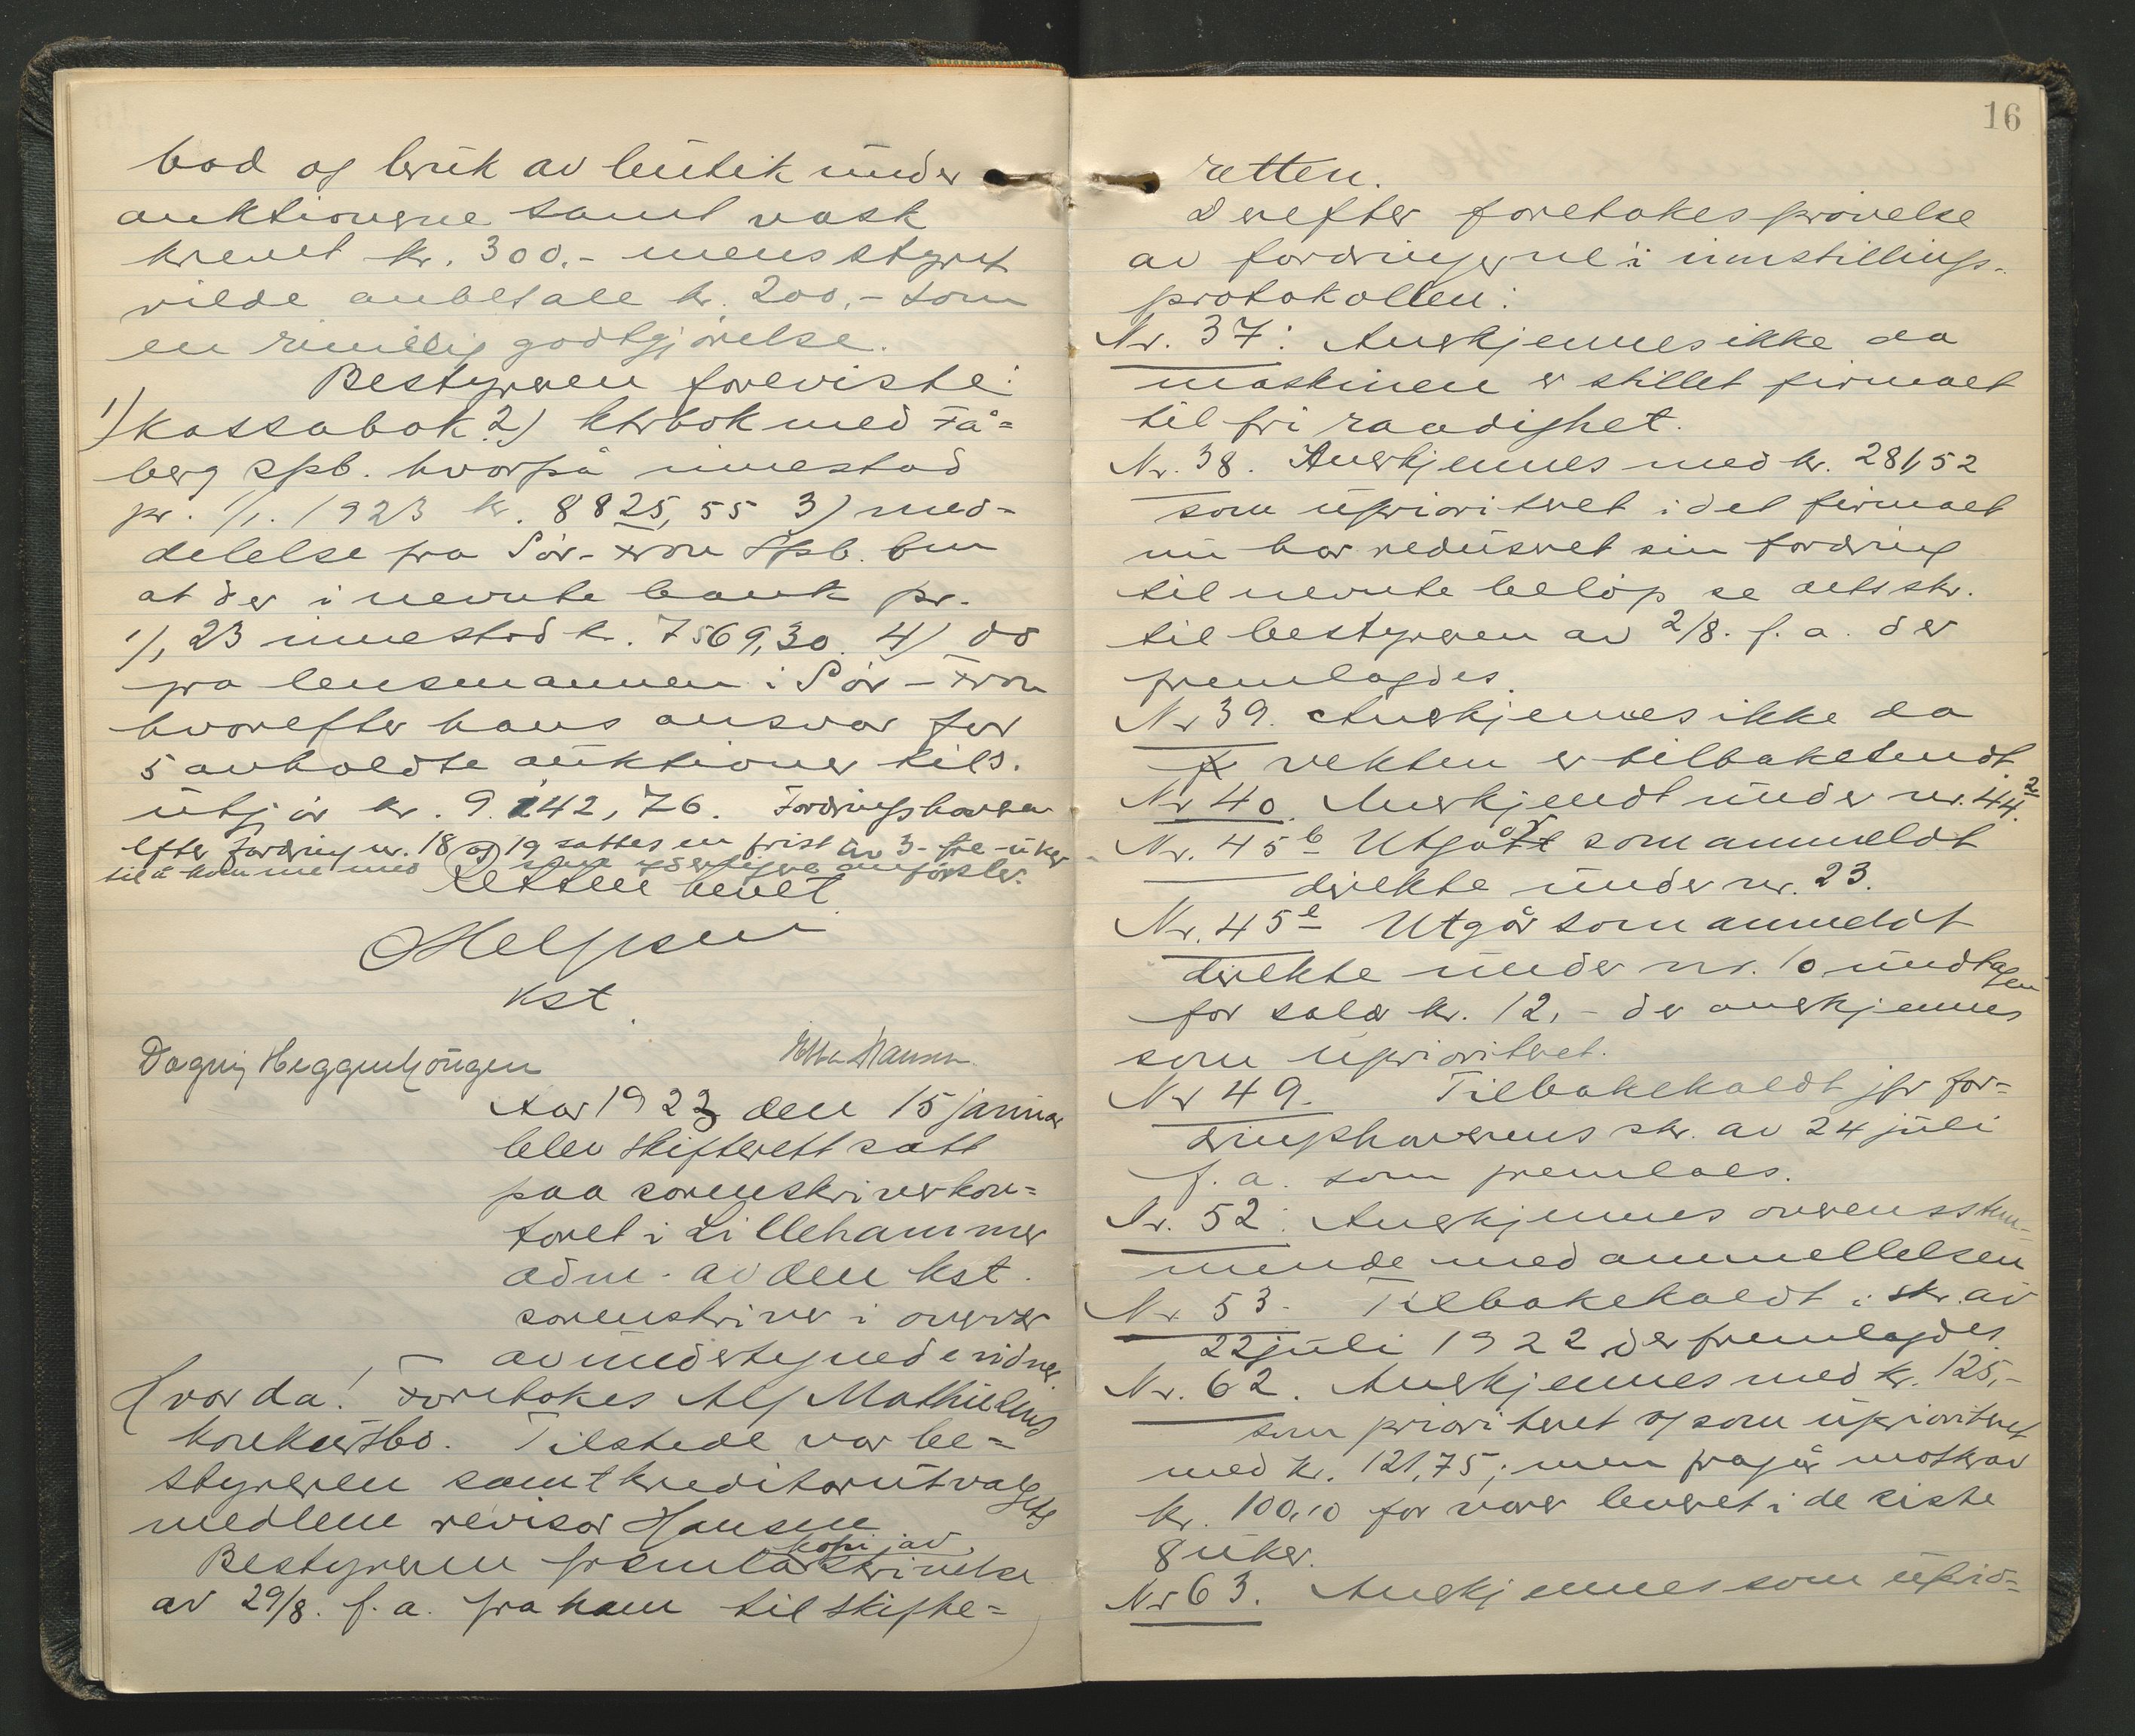 bod og bruk av butik under
auktionerne samt vask
krevet kr. 300.- mens styret
vilde anbefale kr. 200,- som
en rimelig godtgjörelse.
Bestyreren foreviste:
1) Kassabok 2) ktrbok med Få=
berg Spb. hvorpå innestod
pr. 1/1. 1923 kr. 8825,55 3) med-
delelse fra Sör-Fron Spb. om
at der i nevnte bank pr.
1/1 23 innestod kr. 7569,30. 4) do
fra lensmannen i Sör-Fron
hvorefter hans ansvar for
5 avholdte auktioner tils.
utgjör kr. 9.142,76. Fordringshaveren
efter Fordring nr. 18 og 19 sattes en frist av 3- tre -uker
til å komme med yderligere anförsler.
Retten hevet
kst.
Dagny Heggenhougen
Hansen
Aar 1923 den 15 januar
blev skifterett satt
paa sorenskriverkon=
toret i Lillehammer
adm. av den kst.
sorenskriver i overvær
av undertegnede vidner.
Hvor da! Foretokes Alf Mathiesens
konkursbo. Tilstede var be=
styreren samt kreditorutvalgets
medlem revisor Hansen
kopi av
Bestyreren fremla skrivelse
av 29/8. f.a. fra ham til skifte=
16
retten.
Derefter foretokes prövelse
av fordringerne i innstillings-
protokollen:
Nr. 37: Anerkjennes ikke da
maskinen er stillet firmaet
til fri raadighet.
Nr. 38. Anerkjennes med kr. 281,52
som uprioritert idet firmaet
nu har redusert sin fordring
til nevnte belöp se dets skr.
til bestyreren av 2/8. f.a. der
fremlagdes.
Nr 39. Anerkjennes ikke da
vekten er tilbakesendt.
Nr 40. Anerkjendt under nr. 44.2
Nr. 45b Utgår som anmeldt
direkte under nr. 23.
Nr. 45e Utgår som anmeldt
direkte under nr. 10 undtagen
for salær kr. 12,- der anerkjennes
som uprioritert.
Nr 49. Tilbakekaldt jfr for=
dringshaverens skr. av 24 juli
f.a. som fremlaes.
Nr. 52: Anerkjennes overensstem-
mende med anmeldelsen
Nr. 53. Tilbakekaldt i skr. av
22 juli 1922 der fremlagdes
Nr. 62. Anerkjennes med kr. 125,-
som prioritert og som uprioritert
med kr. 121,75; men fragår motkrav
kr. 100,10 for varer leveret i de siste
8 uker.
Nr 63. Anerkjennes som uprio=